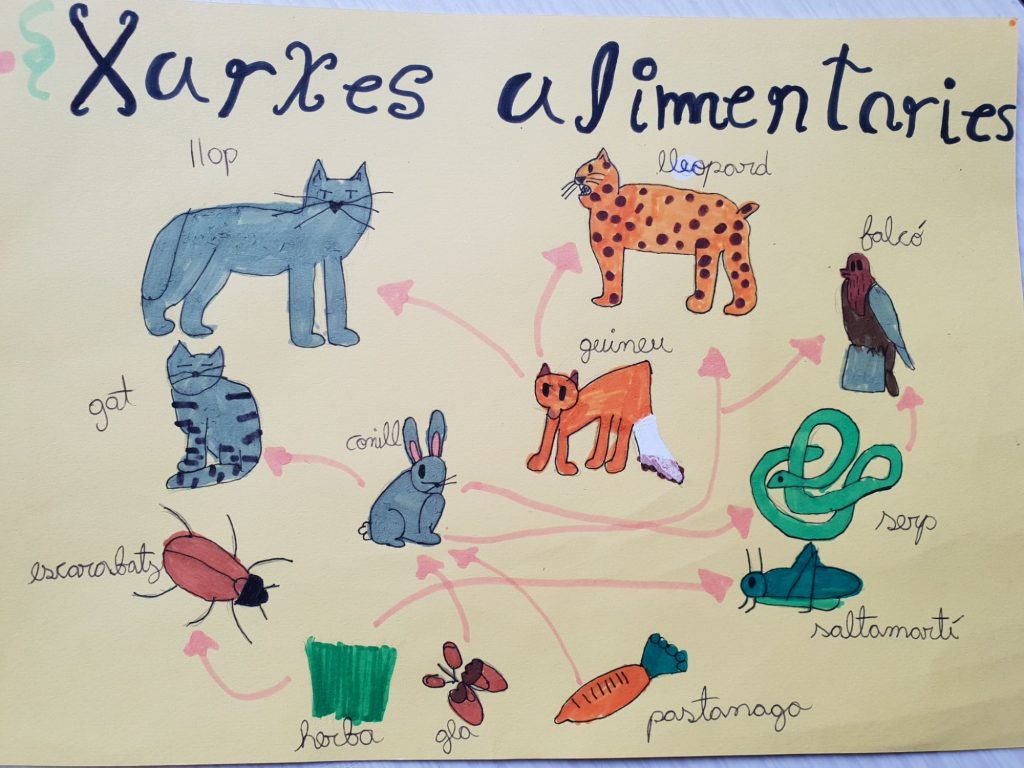 Xarxes alimentaries
llop
lleopard
falcó
guineu
gat
conill
serp
escarabats
saltamartí
herba
gla
pastanaga